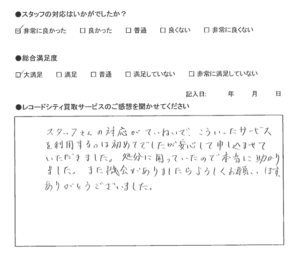 ●スタッフの対応はいかがでしたか?
☑非常に良かった □良かった □普通 □良くない □非常に良くない
●総合満足度
☑大満足 □満足 □普通 □満足していない □非常に満足していない
記入日: 年 月 日
●レコードシティ買取サービスのご感想を聞かせてください
スタッフさんの対応がていねいで、こういったサービス
を利用するのは初めてでしたが安心して申し込ませて
いただきました。処分に困っていたので本当に助かり
ました。また機会がありましたらよろしくお願いします。
ありがとうございました。